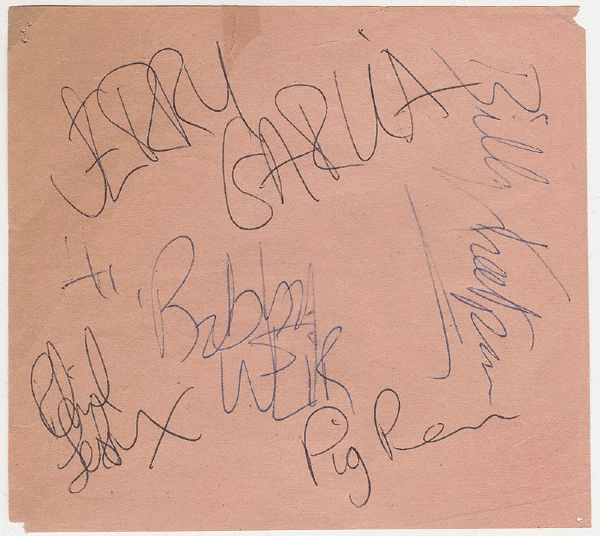 JERRY
GARCIA
Billy Kreutzmann
Hi
Bobby
WEIR
Phil
Lesh
Pig Pen